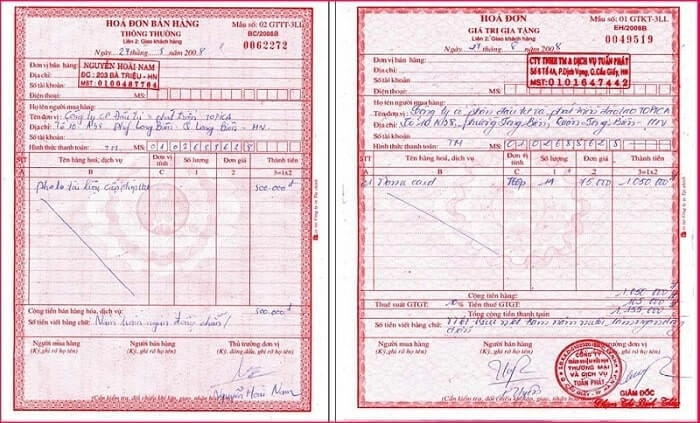 HOÁ ĐƠN BÁN HÀNG
THÔNG THƯỜNG
Liên 2: Giao khách hàng
Mẫu số: 02 GTTT-3LL
BC/2008B
0062272
Ngày 27 tháng 5 năm 2008
Đơn vị bán hàng: NGUYỄN HOÀI NAM
Địa chỉ: ĐC : 203 BÀ TRIỆU - HN
Số tài khoản MST: 0100487764
Điện thoại: MS:
Họ tên người mua hàng:
Tên đơn vị: Công ty CP Đầu tư - phát triển TOPICA
Địa chỉ: Tổ 10 Long Biên Q Long Biên - HN
Số tài khoản:
Hình thức thanh toán: TM MS: 0102688528
STT Tên hàng hoá, dịch vụ Đơn vị tính Số lượng Đơn giá Thành tiền
A B C 1 2 3=1x2
500.000đ
Cộng tiền bán hàng hóa, dịch vụ: 500.000đ
Số tiền viết bằng chữ: Năm trăm ngàn đồng chẵn/
Người mua hàng Người bán hàng Thủ trưởng đơn vị
(Ký, ghi rõ họ tên) (Ký, ghi rõ họ tên) (Ký, đóng dấu, ghi rõ họ tên)
Nguyễn Hoài Nam
HOÁ ĐƠN
GIÁ TRỊ GIA TĂNG
Liên 2: Giao khách hàng
Mẫu số: 01 GTKT-3LL
EH/2008B
0049519
Ngày 27 tháng 8 năm 2008
Đơn vị bán hàng: CTY TNHH TM & DỊCH VỤ TUẤN PHÁT
Địa chỉ: Số 6 Tổ 4A, P.Dịch Vọng, Q.Cầu Giấy, HN
Số tài khoản MST: 0101647442
Điện thoại: MS:
Họ tên người mua hàng:
Tên đơn vị: Công ty cổ phần đầu tư và phát triển TOPICA
Địa chỉ: Tổ 10 phường Long Biên, Quận Long Biên - HN
Số tài khoản:
Hình thức thanh toán: TM MS: 0102688528
STT Tên hàng hoá, dịch vụ Đơn vị tính Số lượng Đơn giá Thành tiền
A B C 1 2 3=1x2
card Hộp 14 75.000 1.050.000đ
Cộng tiền hàng: 1.050.000đ
Thuế suất GTGT: 10% Tiền thuế GTGT: 105.000đ
Tổng cộng tiền thanh toán 1.155.000đ
Số tiền viết bằng chữ: Một triệu một trăm năm mươi
Người mua hàng Người bán hàng
(Ký, ghi rõ họ tên) (Ký, ghi rõ họ tên)
CÔNG TY
TRÁCH NHIỆM HỮU HẠN
THƯƠNG MẠI
VÀ DỊCH VỤ
TUẤN PHÁT
GIÁM ĐỐC